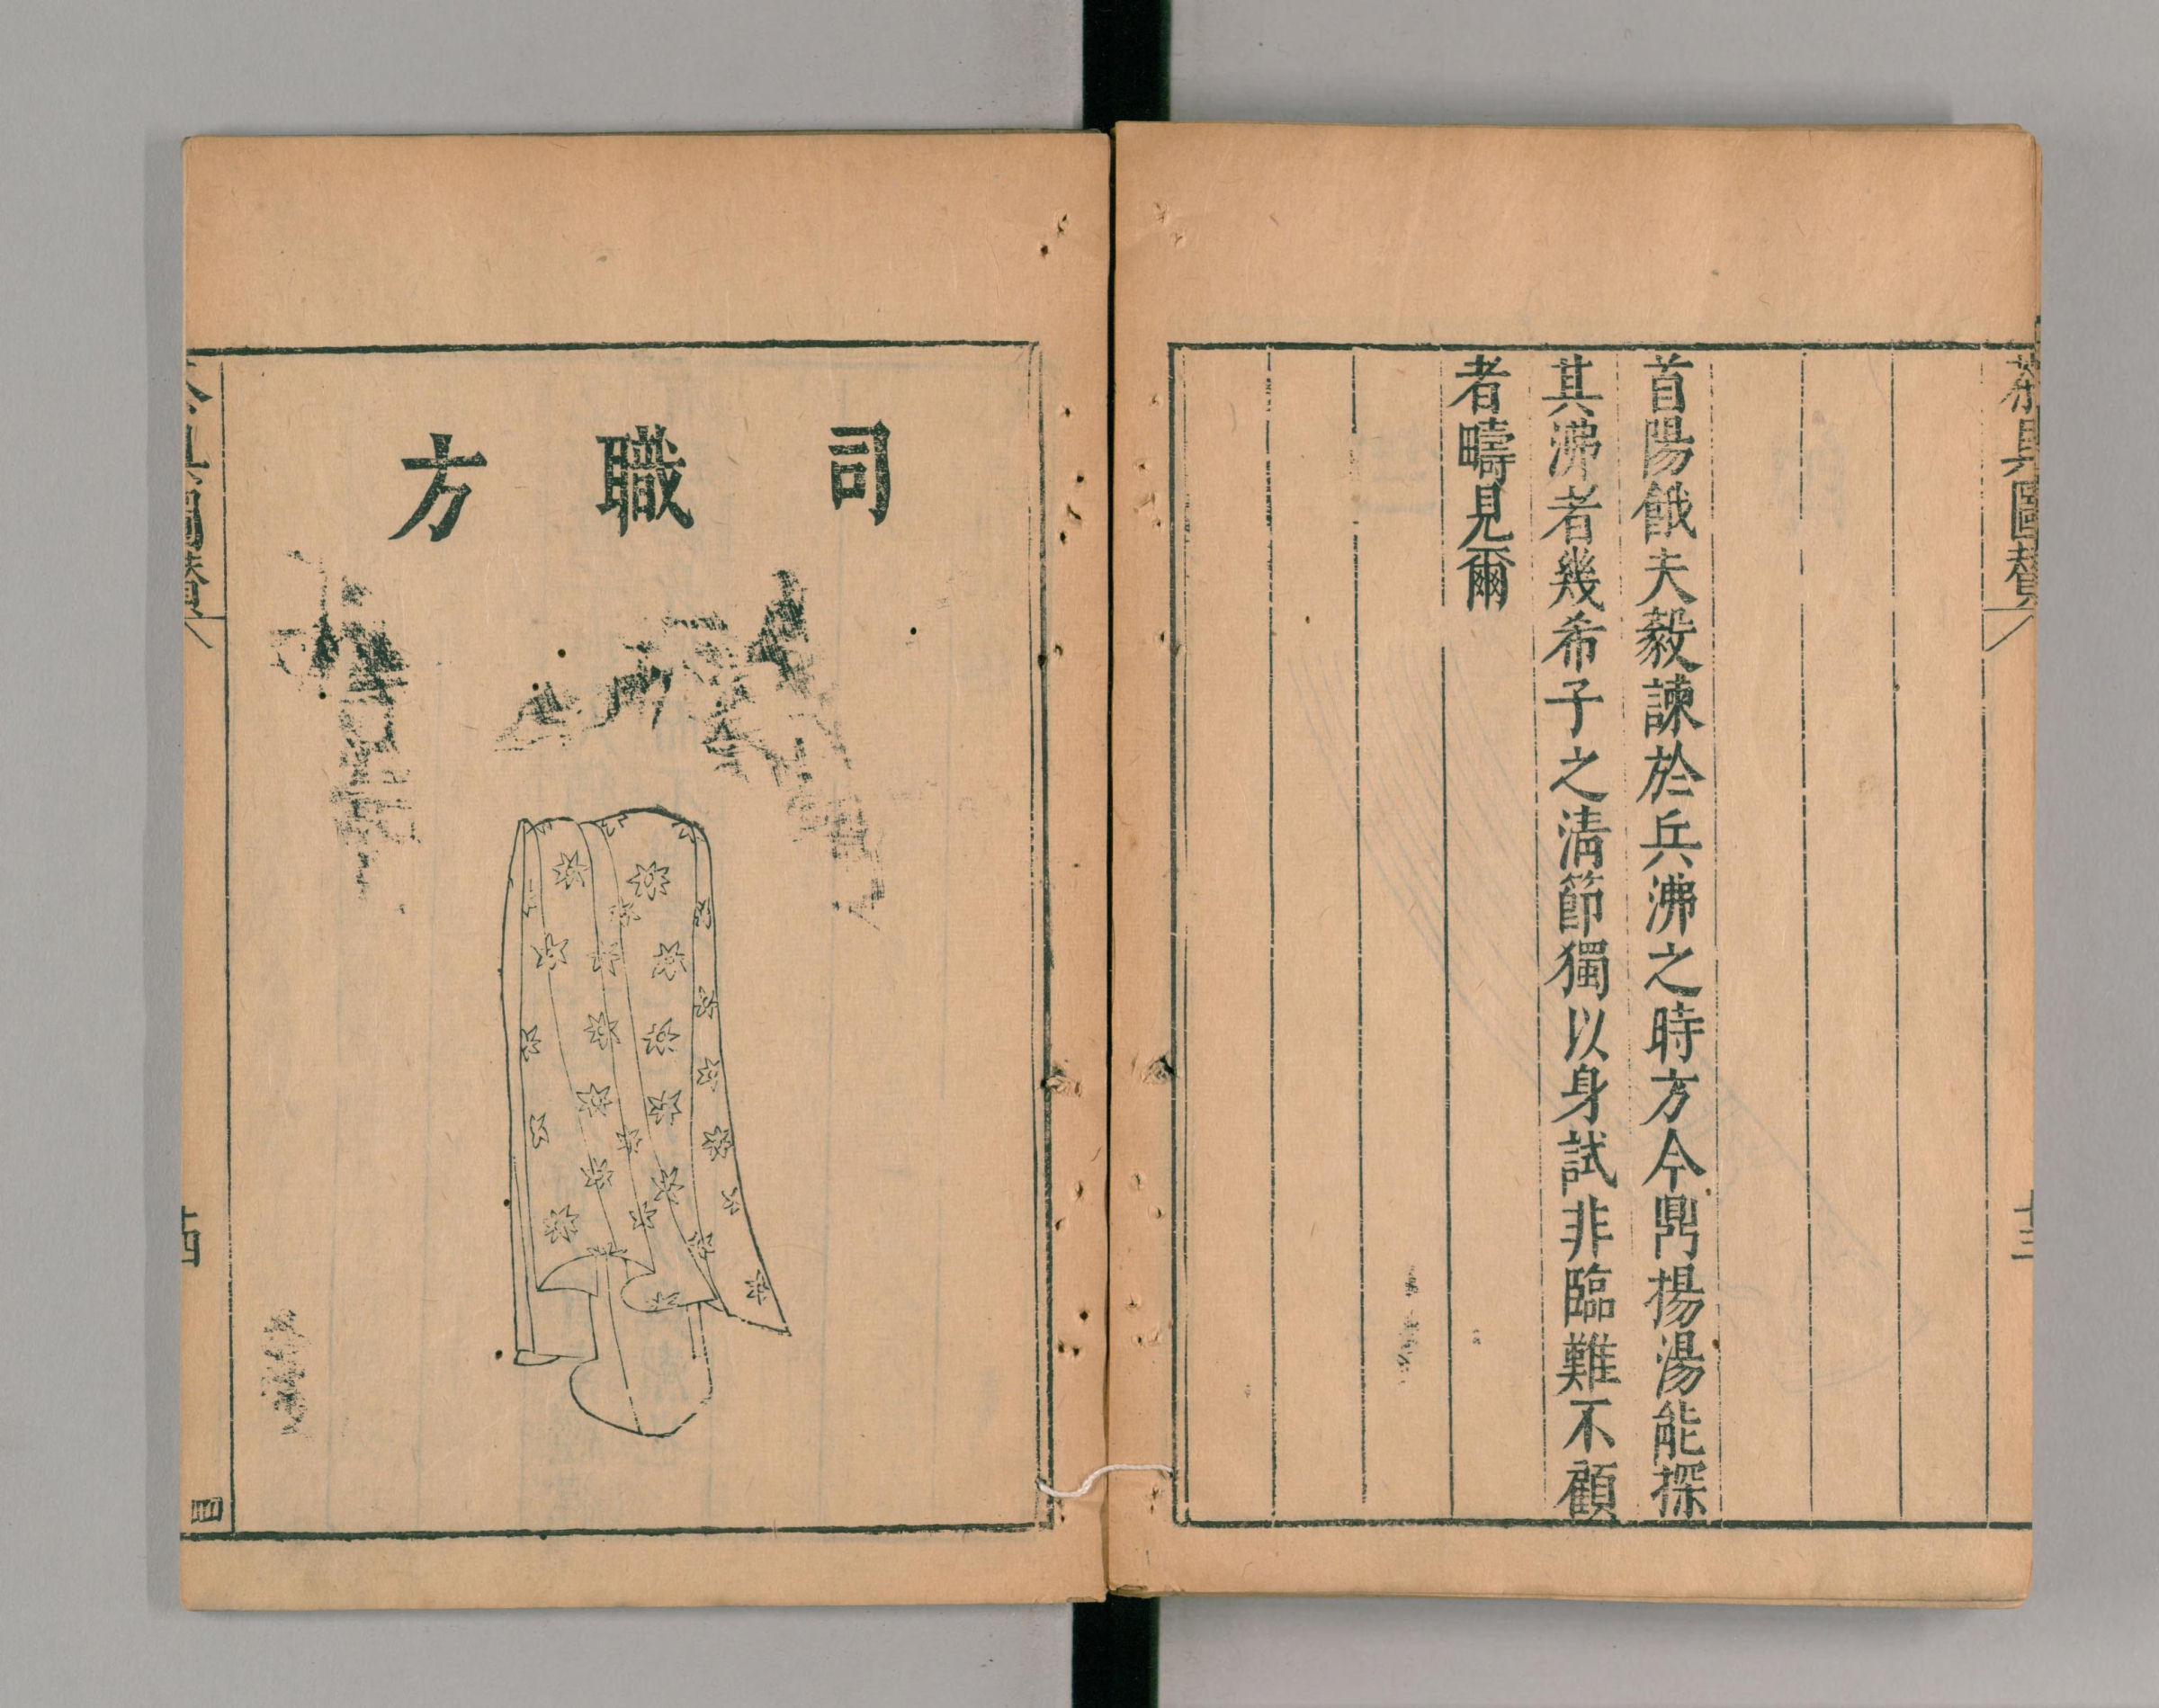 茶具圖贊
十三
首陽餓夫毅諫於兵沸之時方今鼎揚湯能探
其沸者幾希子之淸節獨以身試非臨難不顧
者疇見爾
司職方
茶具圖贊
十四